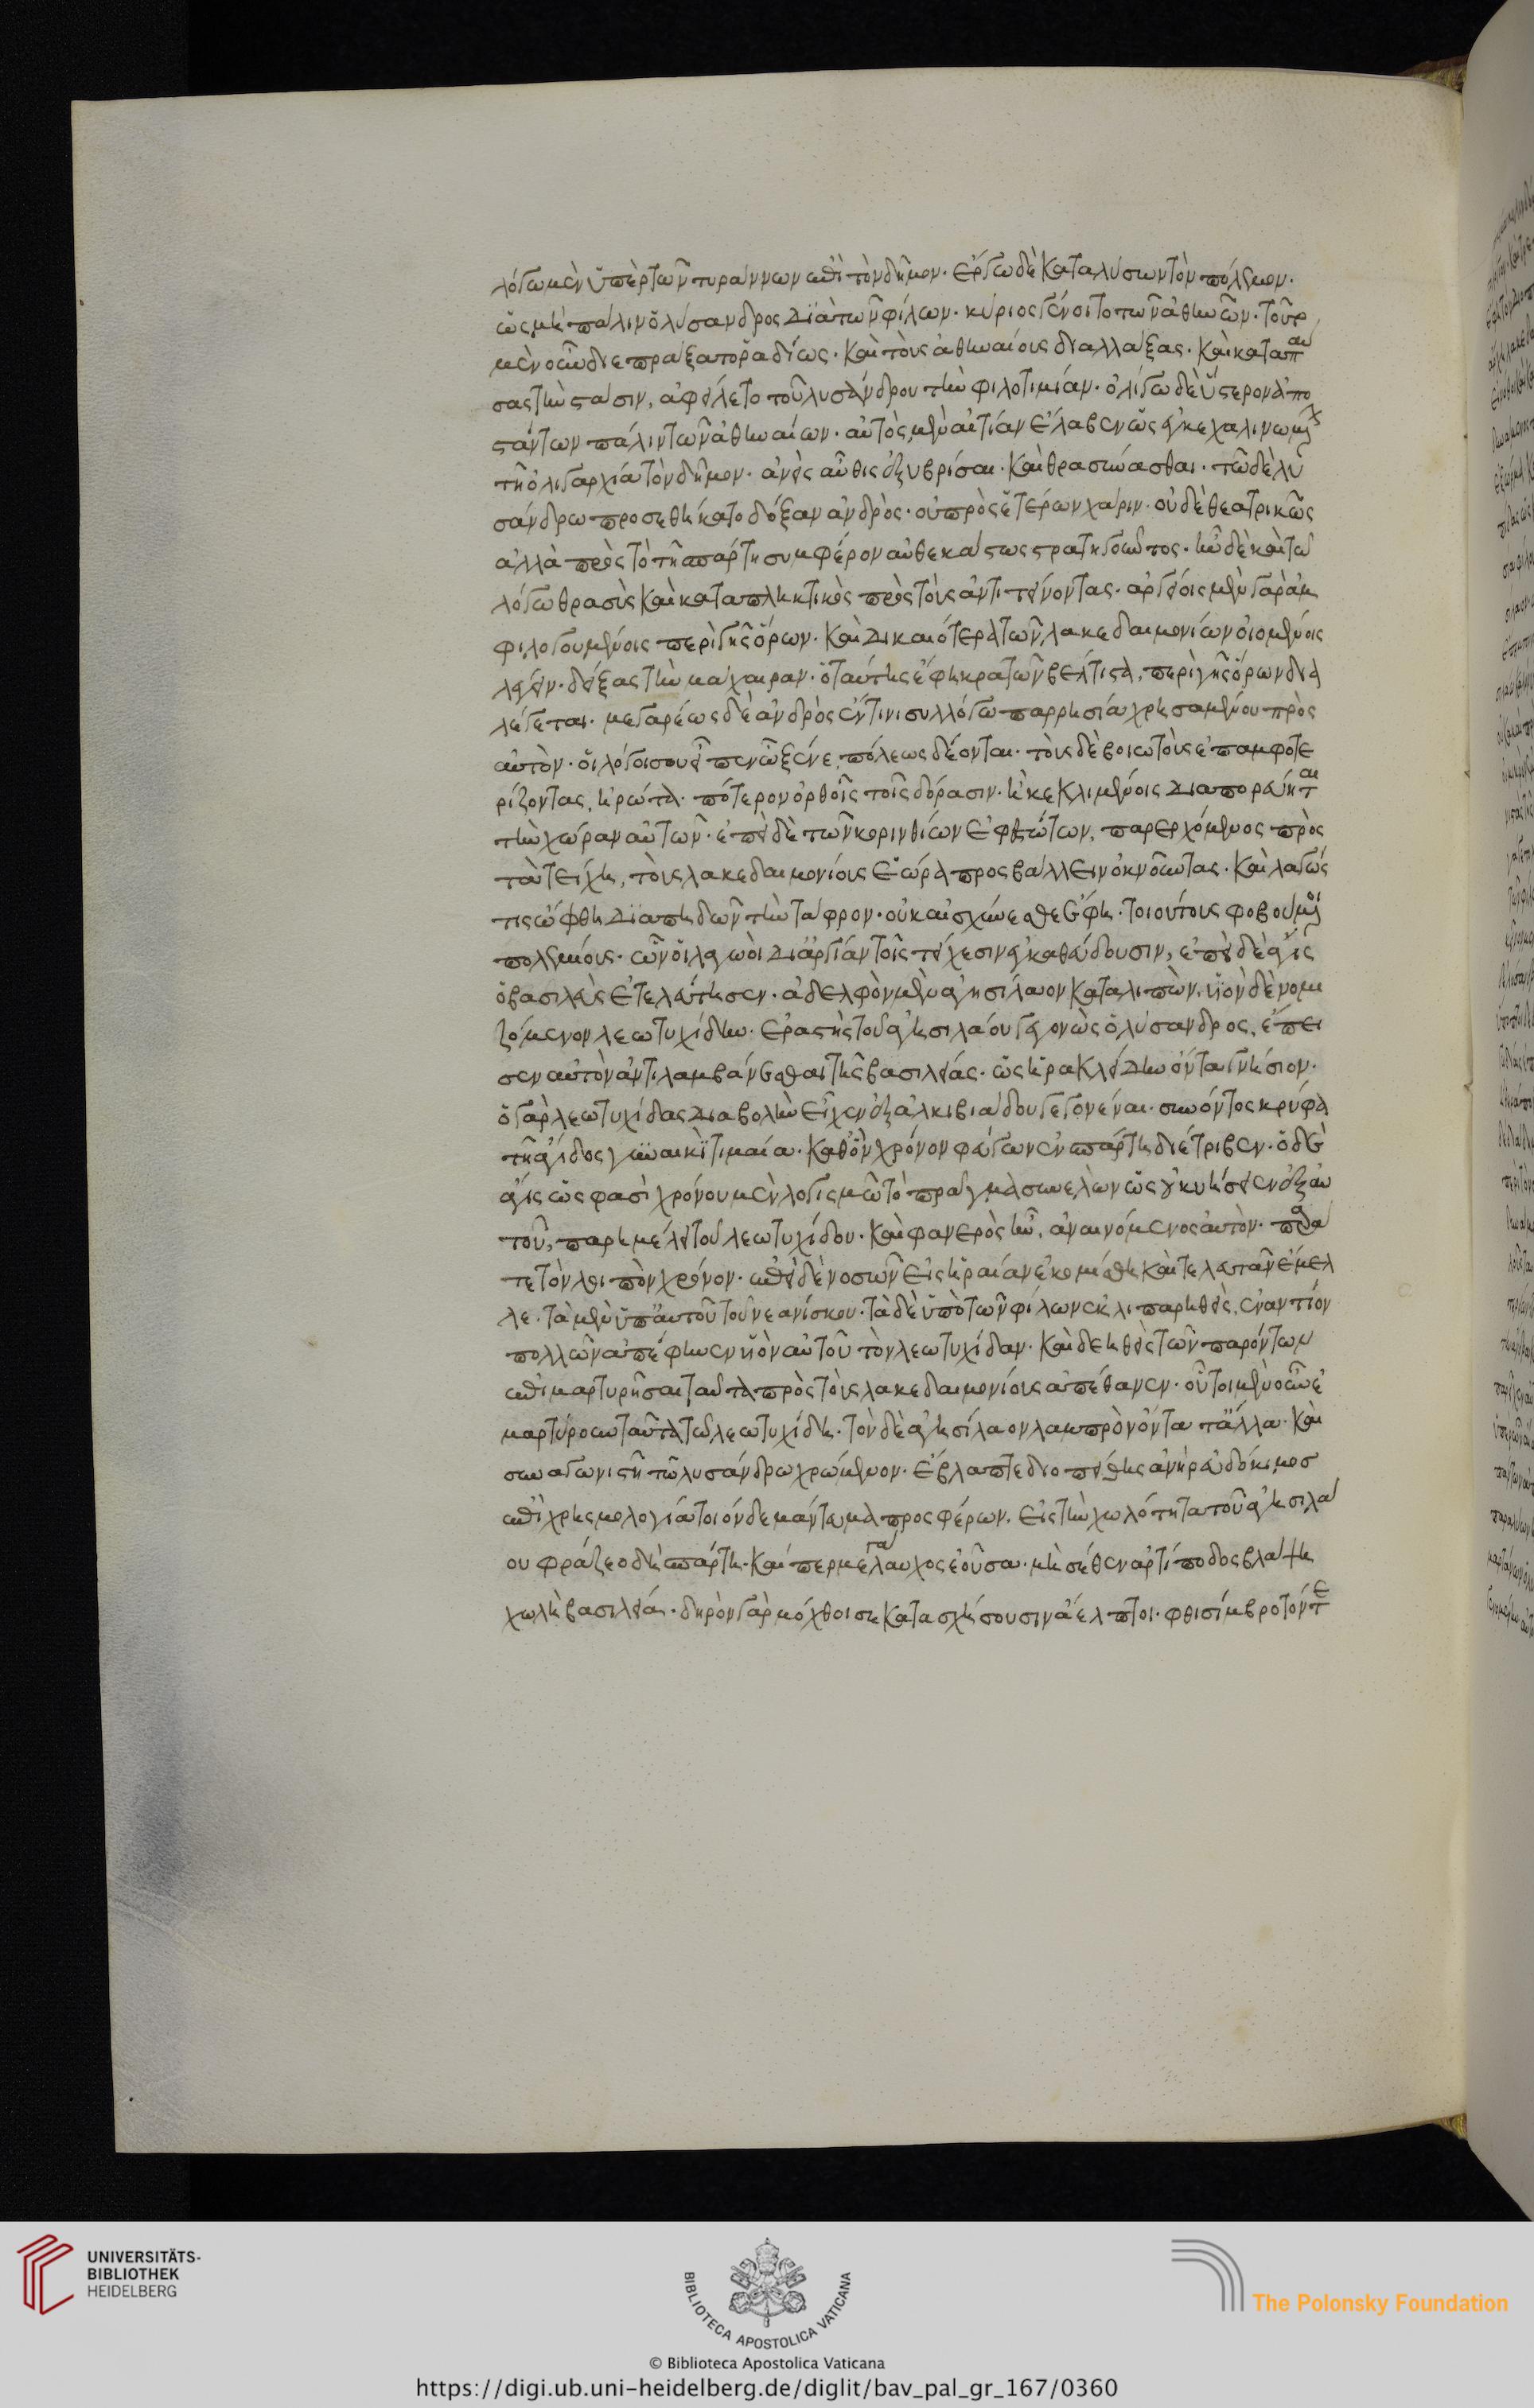 λόγω μὲν ὑπὲρ τῶν τυράννων ἐπὶ τὸν δῆμον· ἔργω δὲ καταλύσων τὸν πόλεμον·
ὡς μὴ πάλιν ὁ λύσανδρος διὰ τῶν φίλων· κύριος γένοιτο τῶν ἀθηνῶν· τοῦτο
μὲν οὖν διεπράξατο ῥαδίως· καὶ τοὺς ἀθηναίους διαλλάξας· καὶ καταπαύ
σας τὴν στάσιν, ἀφείλετο τοῦ λυσάνδρου τὴν φιλοτιμίαν· ὀλίγω δὲ ὕστερον ἀπο
στάντων πάλιν τῶν ἀθηναίων· αὐτὸς μὲν αἰτίαν ἔλαβεν ὡς ἐγκεχαλινωμένον
τῇ ὀλιγαρχία τὸν δῆμον· ἀνεὶς αὖθις ἐξυβρίσαι· καὶ θρασύνασθαι· τῶ δὲ λυ
σάνδρω προσεθήκατο δόξαν ἀνδρὸς· οὐ πρὸς ἑτέρων χάριν· οὐδὲ θεατρικῶς
ἀλλὰ πρὸς τὸ τῇ σπάρτη συμφέρον αὐθεκάστως στρατηγοῦντος· ἦν δὲ καὶ τῶ
λόγω θρασὺς καὶ καταπληκτικὸς πρὸς τοὺς ἀντιτείνοντας· ἀργείοις μὲν γὰρ ἀμ
φιλογουμένοις περὶ γῆς ὅρων· καὶ δικαιότερα τῶν λακεδαιμονίων οἰομένοις
λέγειν· δείξας τὴν μάχαιραν· ὁ ταύτης ἔφη κρατῶν βέλτιστα, περὶ γῆς ὅρων δια
λέγεται· μεγαρέως δὲ ἀνδρὸς ἔν τινι συλλόγω παρρησία χρησαμένου πρὸς
αὐτὸν· οἱ λόγοι σου εἶπεν ὦ ξένε, πόλεως δέονται· τοὺς δὲ βοιωτοὺς ἐπαμφοτε
ρίζοντας, ἠρώτα· πότερον ὀρθοῖς τοῖς δόρασιν· ἢ κεκλιμένοις διαπορεύηται
τὴν χώραν αὐτῶν· ἐπεὶ δὲ τῶν κορινθίων ἐφεστώτων, παρερχόμενος πρὸς
τὰ τείχη, τοὺς λακεδαιμονίους ἑώρα προσβάλλειν ὀκνοῦντας· καὶ λαγώς
τις ὤφθη διαπηδῶν τὴν τάφρον· οὐκ αἰσχύνεσθε ἔφη· τοιούτους φοβούμενοι
πολεμίους· ὧν οἱ λαγωοὶ δι' ἀργίαν τοῖς τείχεσιν ἐγκαθεύδουσιν, ἐπεὶ δὲ ἆγις
ὁ βασιλεὺς ἐτελεύτησεν· ἀδελφὸν μὲν ἀγησίλαον καταλιπὼν· υἱὸν δὲ νομι
ζόμενον λεωτυχίδην· ἐραστὴς τοῦ ἀγησιλάου γεγονὼς ὁ λύσανδρος, ἔπει
σεν αὐτὸν ἀντιλαμβάνεσθαι τῆς βασιλείας· ὡς ἡρακλείδην ὄντα γνήσιον·
ὁ γὰρ λεωτυχίδας διαβολὴν εἶχεν ἐξ ἀλκιβιάδου γεγονέναι· συνόντος κρύφα
τῇ ἄγιδος γυναικὶ τιμαία· καθ' ὃν χρόνον φεύγων ἐν σπάρτη διέτριβεν· ὁ δὲ
ἆγις ὥς φασὶ χρόνου μὲν λογισμῶ τὸ πρᾶγμα συνελὼν ὡς οὐ κυήσειεν ἐξ αὐ
τοῦ, παρημέλει τοῦ λεωτυχίδου· καὶ φανερὸς ἦν, ἀναινόμενος αὐτὸν· παρά
τε τὸν λοιπὸν χρόνον· ἐπεὶ δὲ νοσῶν εἰς ἡραίαν ἐκομίσθη καὶ τελευτᾶν ἔμελ
λε· τὰ μὲν ὑπ' αὐτοῦ τοῦ νεανίσκου· τὰ δὲ ὑπὸ τῶν φίλων ἐκλιπαρηθεὶς, ἐναντίον
πολλῶν ἀπέφηνεν υἱὸν αὐτοῦ τὸν λεωτυχίδαν· καὶ δεηθεὶς τῶν παρόντων
ἐπιμαρτυρῆσαι ταῦτα πρὸς τοὺς λακεδαιμονίους ἀπέθανεν· οὗτοι μὲν οὖν ἐ
μαρτύρουν ταῦτα τῶ λεωτυχίδη· τὸν δὲ ἀγησίλαον λαμπρὸν ὄντα τἄλλα· καὶ
συναγωνιστῇ τῶ λυσάνδρω χρώμενον· ἔβλαπτε διοπείθης ἀνὴρ εὐδόκιμος
ἐπὶ χρησμολογία τοιόνδε μάντευμα προσφέρων, εἰς τὴν χωλότητα τοῦ ἀγησιλά
ου φράζεο δὴ σπάρτη· καί περ μεγάλαυχος ἐοῦσα· μὴ σέθεν ἀρτίποδος βλάψη
χωλὴ βασιλεία· δηρὸν γὰρ μόχθοι σε κατασχήσουσιν ἄελπτοι· φθισίμβροτόν τε
UNIVERSITÄTS-
BIBLIOTHEK
HEIDELBERG
BIBLIOTECA APOSTOLICA VATICANA
The Polonsky Foundation
© Biblioteca Apostolica Vaticana
https://digi.ub.uni-heidelberg.de/diglit/bav_pal_gr_167/0360